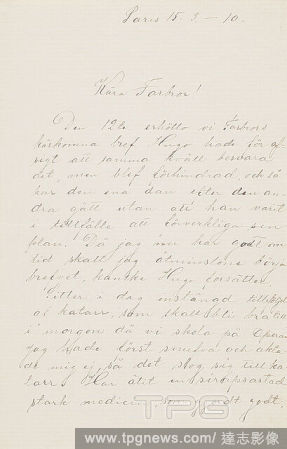 Paris 15.3.–10.
Kära Farbror!
Den 12te erhöllo vi Farbrors
kärkomna bref Hugo hade för af
sigt att samma kväll besvara
det, men blef förhindrad, och så
har den ena dan efter den an-
dra gått utan att han varit
i tillfälle att förverkliga sin
plan! Då jag nu har godt om
tid skall jag åtminstone börja
brefvet, kanske Hugo fortsätter.
Sitter i dag instängd till följd
af katarr, som skall bli bra
i morgon då vi skola på Operan
jag hade först snufva och akta-
de mig ej, så det slog sig till ka-
tarr. Har ätit en
stark medicin som godt
TPG
www.tpgnews.com / 達志影像